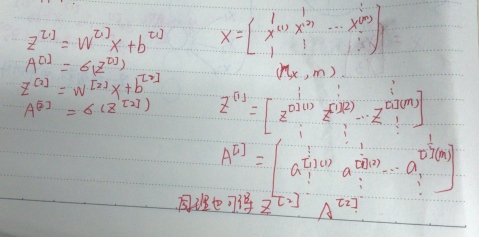 Z^[1] = W^[1] X + b^[1]
A^[1] = σ(Z^[1])
Z^[2] = W^[2] X + b^[2]
A^[2] = σ(Z^[2])
X = [ x^(1) x^(2) ... x^(m) ]
(nx, m).
Z^[1] = [ z^[1](1) z^[1](2) ... z^[1](m) ]
A^[1] = [ a^[1](1) a^[1](2) ... a^[1](m) ]
同理也可得 Z^[2] A^[2]